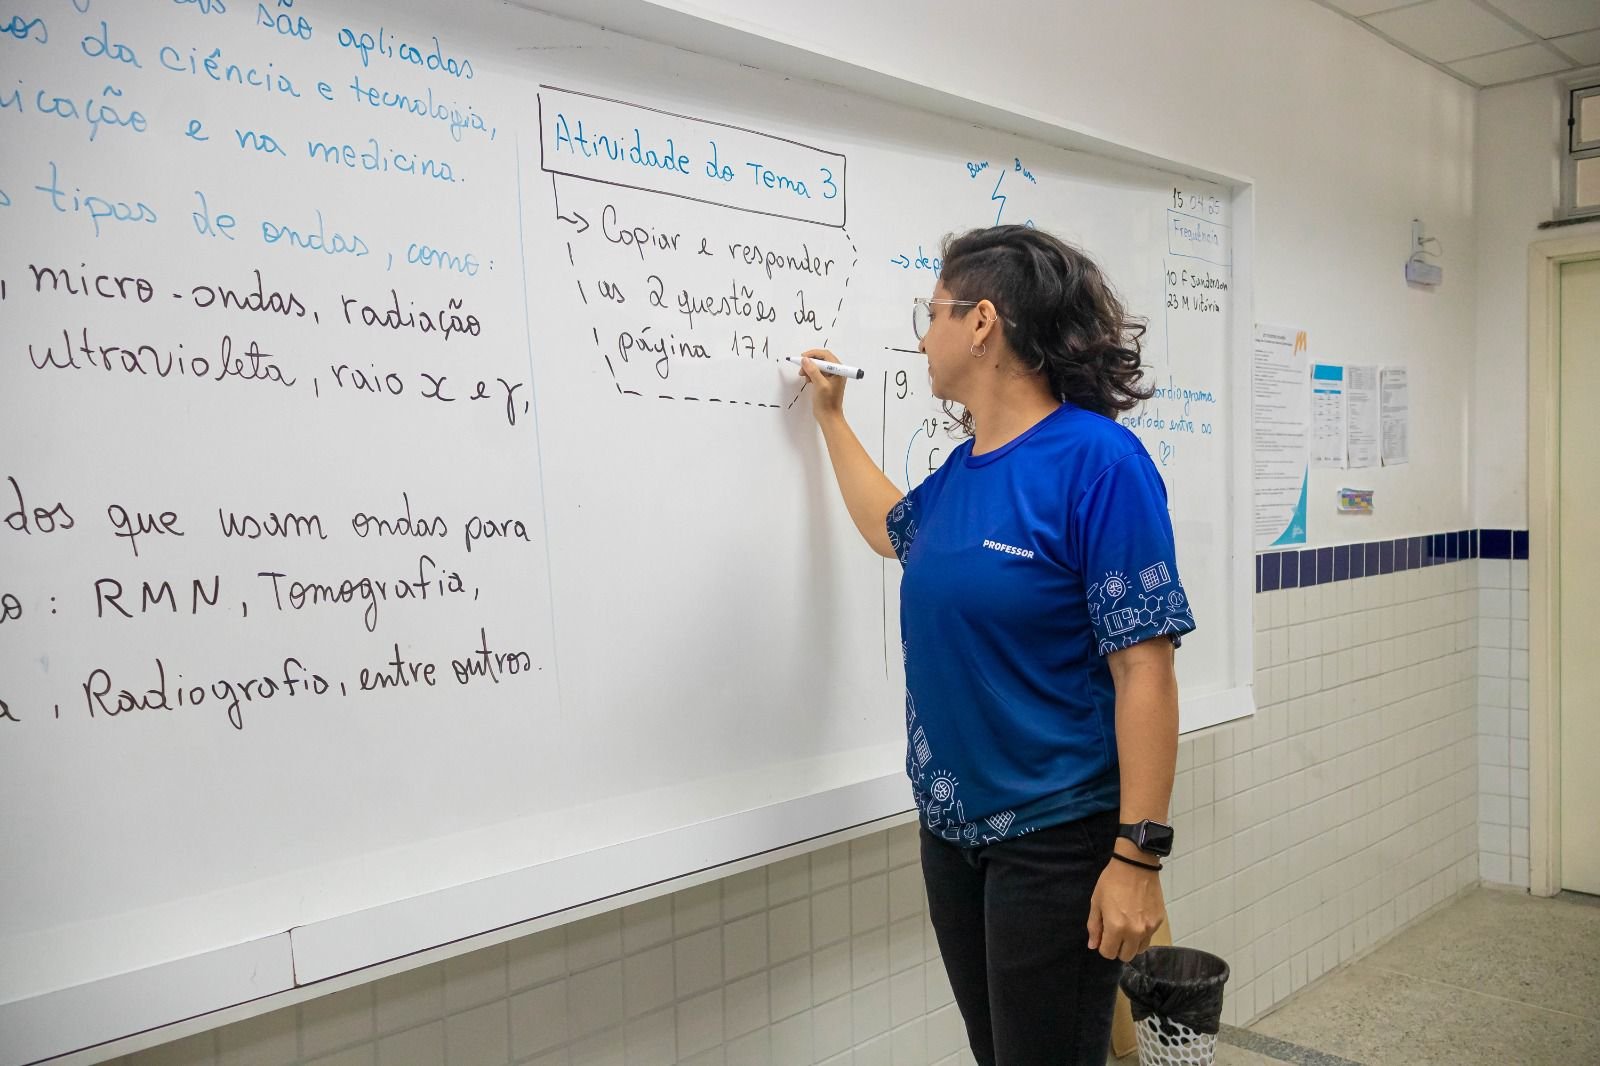 são aplicadas
da ciência e tecnologia,
e na medicina.
tipos de ondas, como:
, micro-ondas, radiação
ultravioleta, raio x e γ,
que usam ondas para
: RMN, Tomografia,
, Radiografia, entre outros.
Atividade do Tema 3
→ Copiar e responder
as 2 questões da
página 171.
Bum Bum
9.
v =
f
15 04 25
Frequência
10 F Janderson
23 M Vitória
período entre as
PROFESSOR